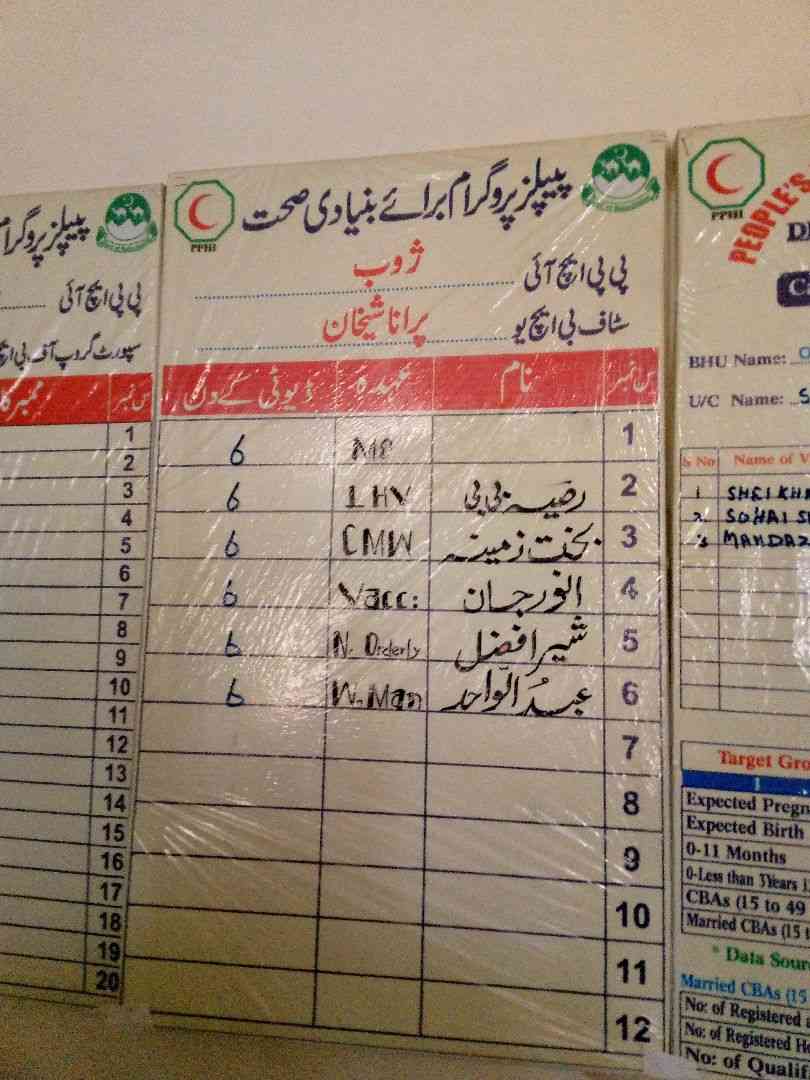 پیپلز پروگرام
پی پی ایچ آئی
سپورٹ گروپ آف بی ایچ
س نمبر
1
2
3
4
5
6
7
8
9
10
11
12
13
14
15
16
17
18
19
20
پیپلز پروگرام برائے بنیادی صحت
PPHI
پی پی ایچ آئی ژوب
سٹاف بی ایچ یو پرانا شیخان
س نمبر نام عہدہ ڈیوٹی کے دن
1 MP 6
2 رضیہ بی بی LHV 6
3 بخت زمینہ CMW 6
4 انور جان Vacc: 6
5 شیر افضل N. Orderly 6
6 عبدُالواحد W.Man 6
7
8
9
10
11
12
PPHI
PEOPLE'S
BHU Name:
U/C Name: S
S No Name of V
1 SHEIKHA
2 SOHAI S
3 MANDAZ
Target Gro
1
Expected Pregn
Expected Birth
0-11 Months
0-Less than 3Years
CBAs (15 to 49
Married CBAs (15 t
* Data Sour
Married CBAs (15
No: of Registered
No: of Registered He
No: of Qualif